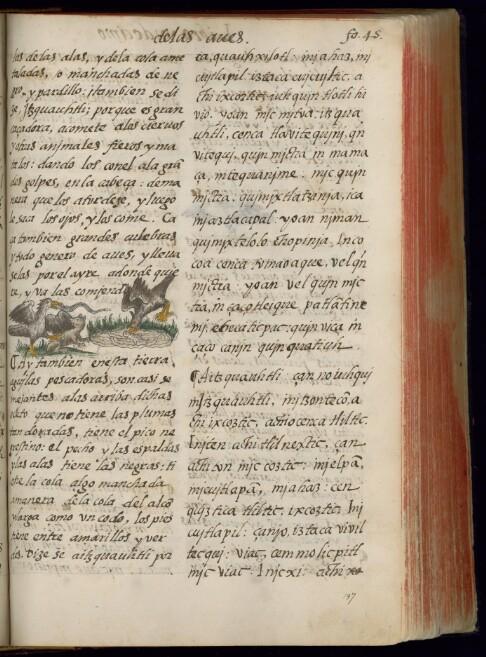 de las aues. fo. 45.
las de las alas, y dela cola ame
taladas, o manchadas de ne
gro, y pardillo: tambien se di
ze, itzquauhtli: porque es gran
caçadora, acomete alos cieruos
y otros animales fieros y ma
ta los: dando los con el ala gra
des golpes, en la cabeça: de ma
nera que los aturdeze, y luego
le saca los ojos, y los come. Ca
ça tambien grandes culebras
y todo genero de aues, y lleua
selas por el ayre, adonde quie
re, y va las comiendo.
Ay tambien en esta tierra,
aguilas pescadoras, son casi se
mejantes a las arriba dichas
que no tiene las plumas
tan doradas, tiene el pico ne
gestino: el pecho y las espaldas
y las alas tiene las negras: ti
ene la cola algo manchada
amanera dela cola, del alco
larga como un codo, los pies
tiene entre amarillos y ver
des. Dize se aitzquauhtli por
ca, quauhxilotl: in jahaz, inj
cujtlapil: iztaca cujcujltic. a
chi
vio. yoan mjc injtoca: itzqua
uhtli, cenca tlauitequinj, qn
vitequj, quin mjctia in mama
ça, in tequanime: mjc quin
mjctia: qujmjxtlatzinja, ica
in jaztlacapal: yoan njman
qujmjxtelolo chopinja. In co
coa cenca tomaoaque, vel qn
mjctia: yoan vel qujn mjc
tia, in çaço tleique patlatine
mj. ehecaticpac: quin vica in
canin quin quatiuh.
Aitzquauhtli: çan no iuhqui
in itzquauhtli, in jtzonteco, a
chi ixcoztic, achi cenca tliltic.
In jten achi tlilnextic, çan
achi mjc coztic: in jelpa,
in jcujtlapa, in jahaz: cen
quiztica tliltic, ixcoztic. In j
cujtlapil: çanjo, iztaca vivil
tecqui: viac, cemmolicpitl
injc viac. Injcxi: achi xo
157